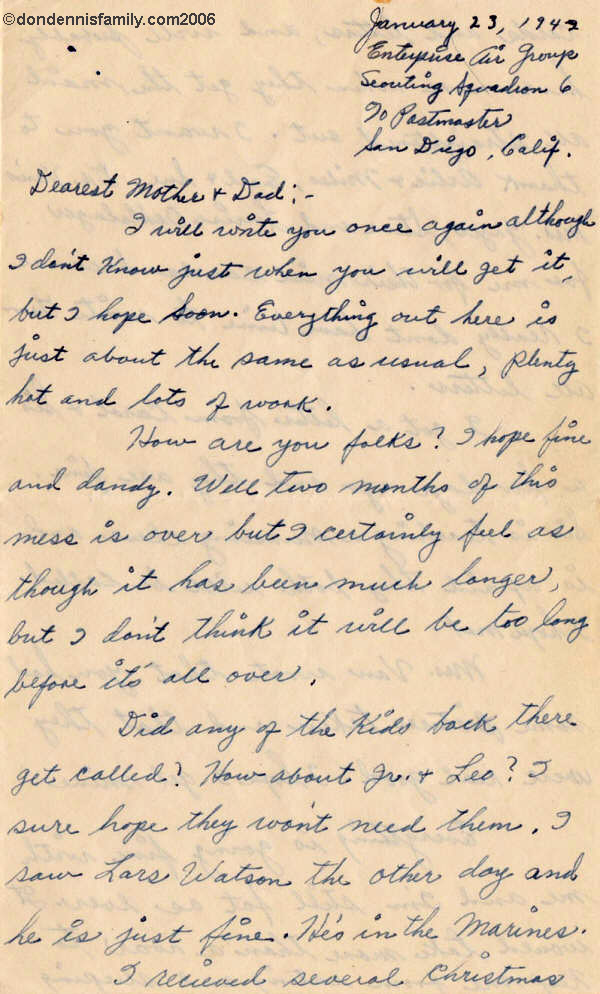 ©dondennisfamily.com2006
January 23, 1942
Enterprise Air Group
Scouting Squadron 6
℅ Postmaster
San Diego, Calif.
Dearest Mother + Dad:-
I will write you once again although
I don't know just when you will get it,
but I hope soon. Everything out here is
just about the same as usual, plenty
hot and lots of work.
How are you folks? I hope fine
and dandy. Well two months of this
mess is over but I certainly feel as
though it has been much longer,
but I don't think it will be too long
before it's all over.
Did any of the kids back there
get called? How about Jr. + Leo? I
sure hope they won't need them. I
saw Lars Watson the other day and
he is just fine. He's in the Marines.
I recieved several Christmas